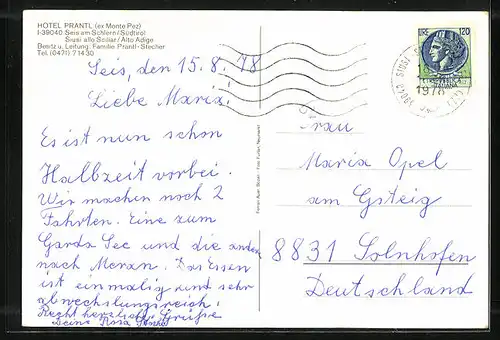 HOTEL PRANTL (ex Monte Pez)
I-39040 Seis am Schlern/Südtirol
Siusi allo Sciliar/Alto Adige
Besitz u. Leitung: Familie Prantl-Stecher
Tel. (0471) 7 14 30
LIRE 120
39040 SIUSI
1978
Seis, den 15.8.78
Liebe Maria!
Es ist nun schon
Halbzeit vorbei.
Wir machen noch 2
Fahrten. Eine zum
Garda See und die andere
nach Meran. Das Essen
ist einmalig und sehr
abwechslungsreich!
Recht herzliche Grüße
Deine Rosa
Frau
Maria Opel
am Gsteig
8831 Solnhofen
Deutschland